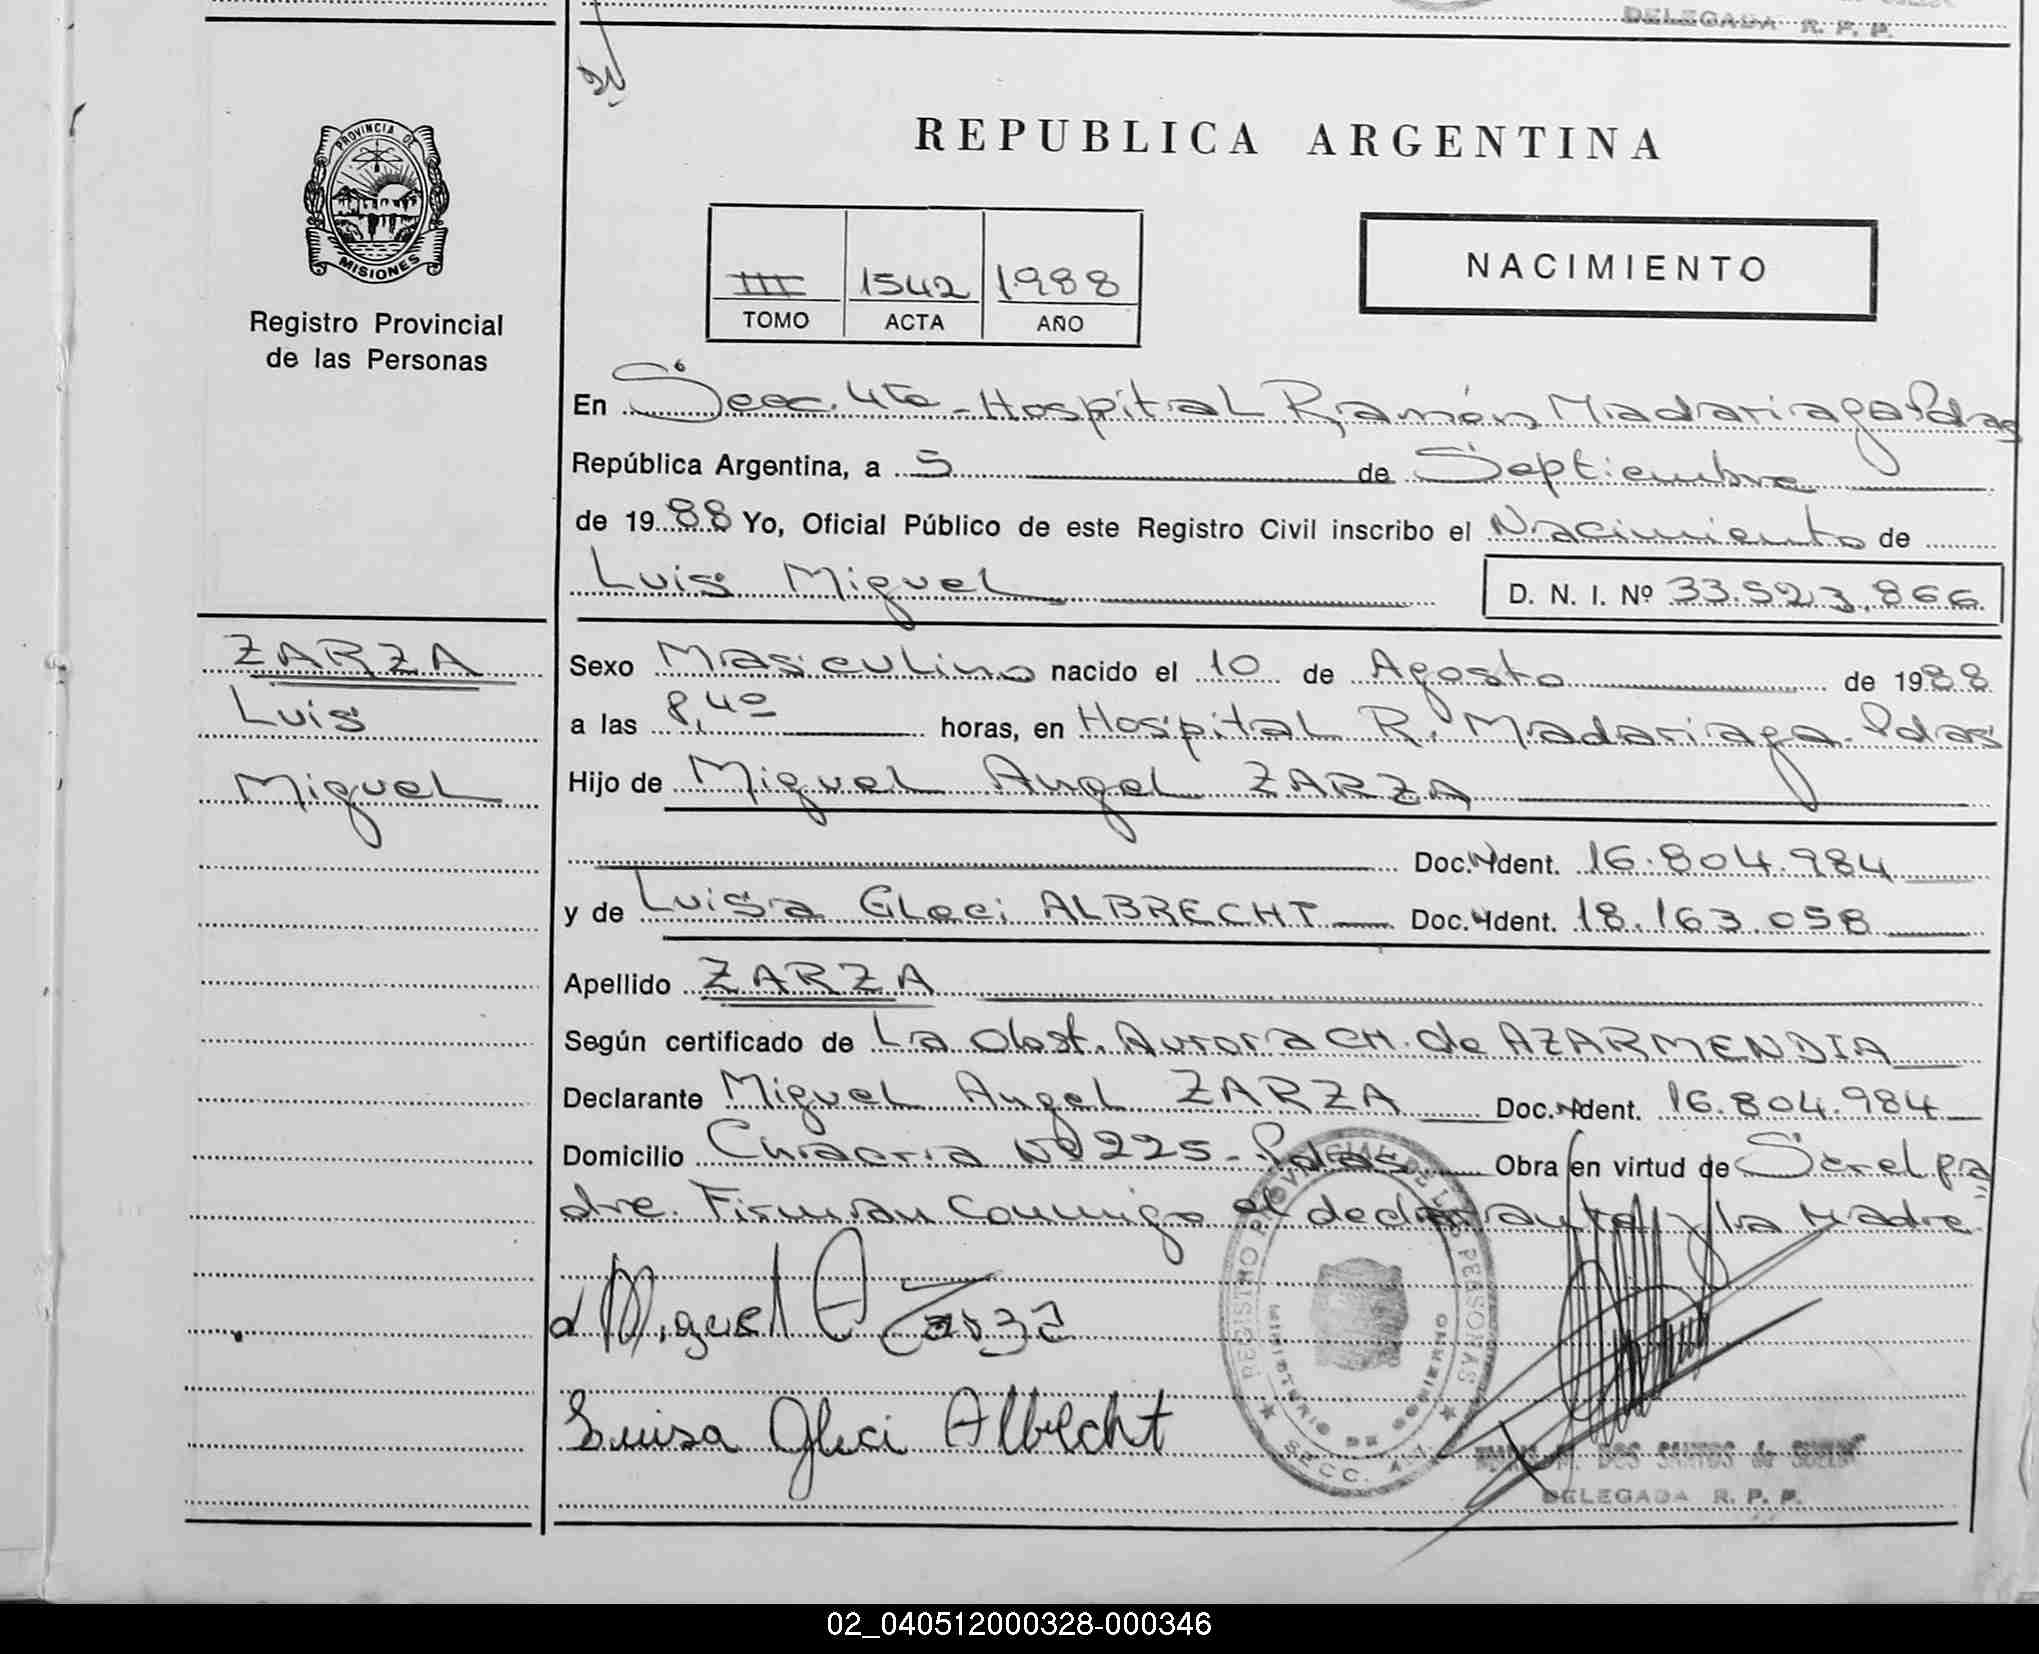 DELEGADA R. P. P.
PROVINCIA DE
MISIONES
Registro Provincial
de las Personas
REPUBLICA ARGENTINA
III 1542 1988
TOMO ACTA AÑO
NACIMIENTO
En Secc. 4ta - Hospital Ramón Madariaga Pdas
República Argentina, a 5 de Septiembre
de 1988 Yo, Oficial Público de este Registro Civil inscribo el Nacimiento de
Luis Miguel D. N. I. Nº 33.523.866
ZARZA
Luis
Miguel
Sexo Masculino nacido el 10 de Agosto de 1988
a las 8,40 horas, en Hospital R. Madariaga. Pdas
Hijo de Miguel Angel ZARZA
Doc. Ident. 16.804.984
y de Luisa Gleci ALBRECHT Doc. Ident. 18.163.058
Apellido ZARZA
Según certificado de La Obst. Aurora CH. de AZARMENDIA
Declarante Miguel Angel ZARZA Doc. Ident. 16.804.984
Domicilio Chacra Nº 225 - Pdas. Obra en virtud de Ser el pa
dre. Firman conmigo el declarante y la Madre
Miguel A Zarza
Luisa Gleci Albrecht
REGISTRO PROVINCIAL DE LAS PERSONAS
MINISTERIO DE GOBIERNO
SECC. 4
DOS SANTOS
DELEGADA R. P. P.
02_040512000328-000346